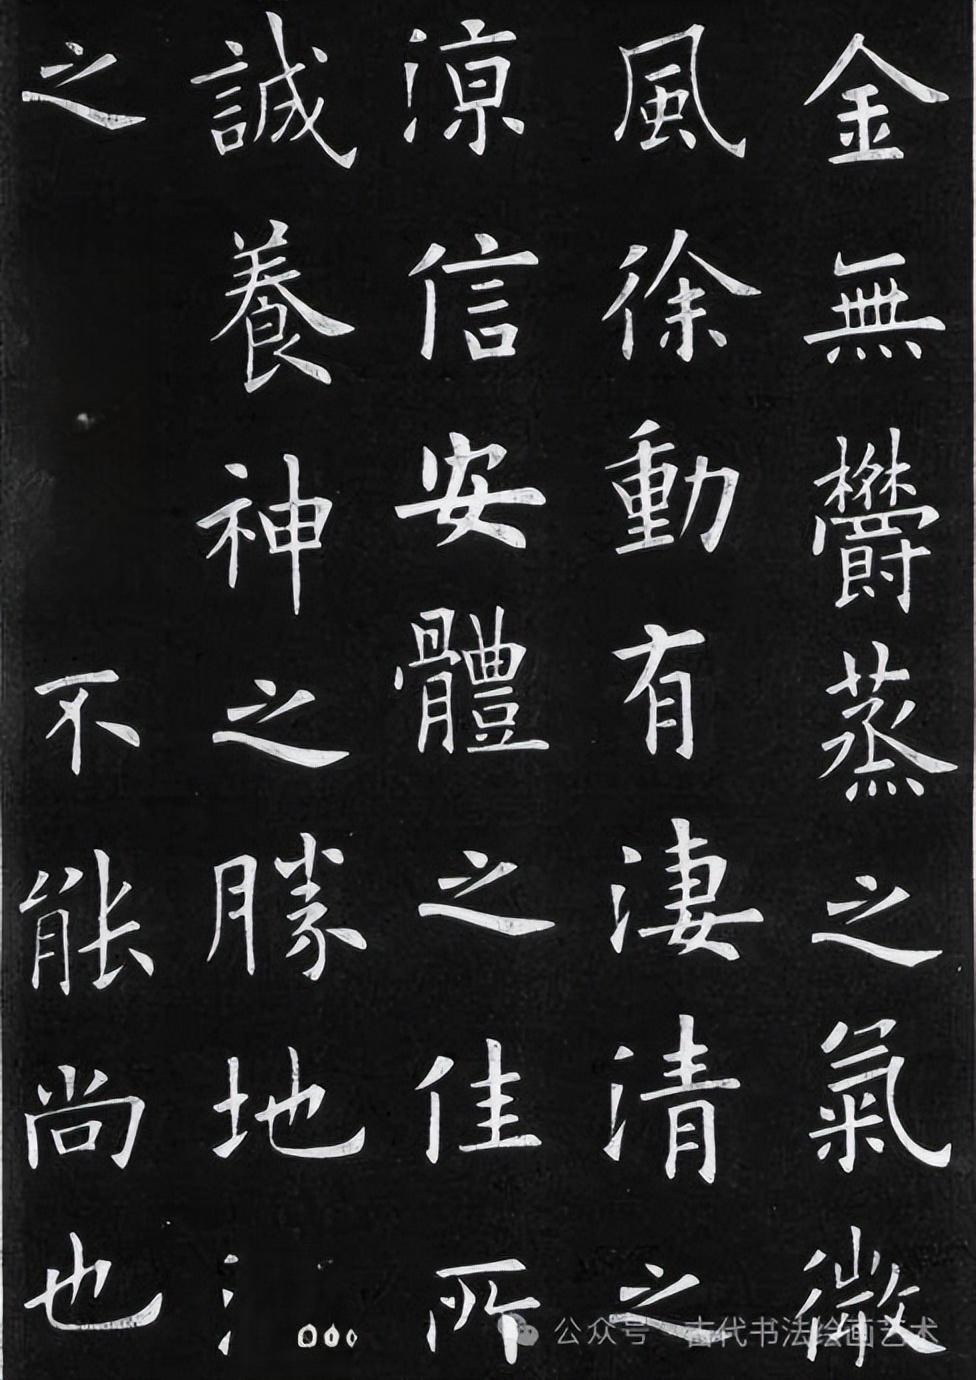 金無鬱蒸之氣微
風徐動有淒清之
涼信安體之佳所
誠養神之勝地
之不能尚也
公众号·古代书法绘画艺术